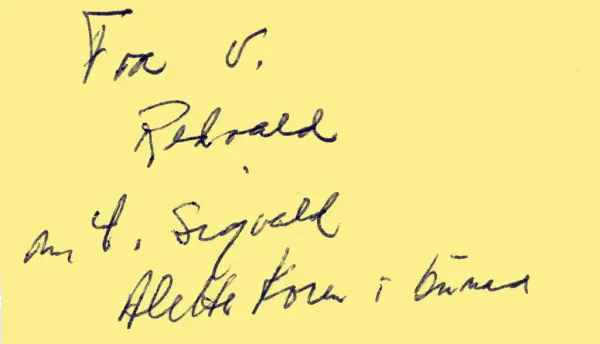 Fra v.
Redvald
Sigvald
Alette Koren i bunad